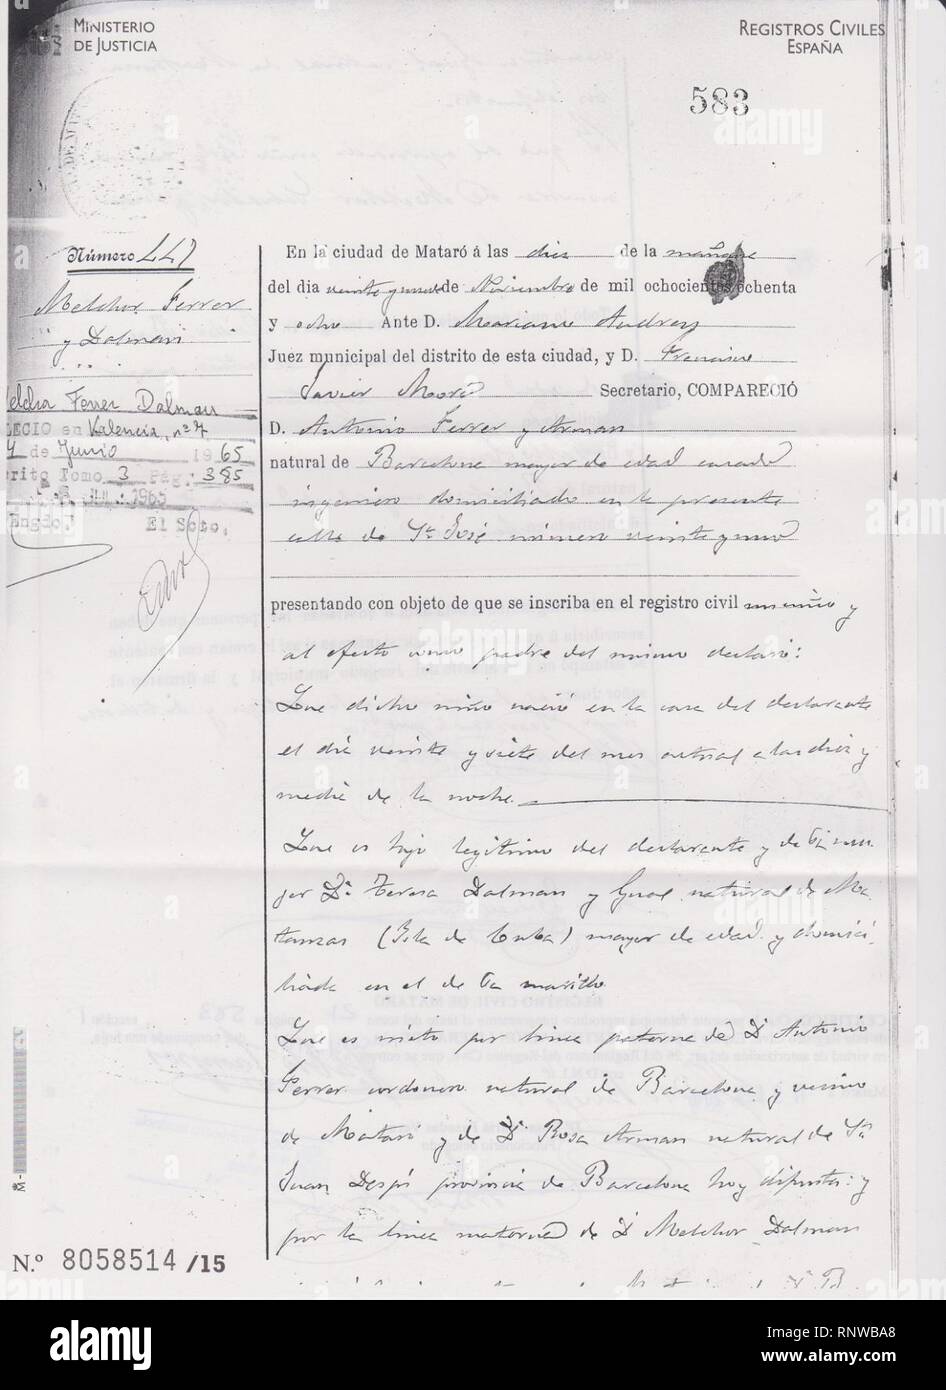 MINISTERIO
DE JUSTICIA
REGISTROS CIVILES
ESPAÑA
583
Número 447
Melchor Ferrer
y Dalmau
Melchor Ferrer Dalmau
LECIO en Valencia, nº 7
de Junio 1965
crito Tomo 3 Pág. 385
1965
El Scto,
En la ciudad de Mataró á las diez de la mañana
del dia veinte y nueve de Noviembre de mil ochocientos ochenta
y ocho Ante D. Mariano Andreu
Juez municipal del distrito de esta ciudad, y D. Francisco
Javier Moré Secretario, COMPARECIÓ
D. Antonio Ferrer y Arman
natural de Barcelona mayor de edad casado
ingeniero domiciliado en la presente
calle de Sn José número veinte y uno
presentando con objeto de que se inscriba en el registro civil un niño y
al efecto como padre del mismo declaró:
Que dicho niño nació en la casa del declarante
el día veinte y siete del mes actual a las diez y
media de la noche.
Que es hijo legítimo del declarante y de su mu
jer Da Teresa Dalmau y Gual natural de Ma
tanzas (Isla de Cuba) mayor de edad y domici
liada en el de su marido
Que es nieto por línea paterna de D Antonio
Ferrer cordonero natural de Barcelona y vecino
de Mataró y de Da Rosa Arman natural de Sn
Juan Despí provincia de Barcelona hoy difunta: y
por la línea materna de D Melchor Dalmau
N.º 8058514 /15
alamy
Image ID: RNWBA8
www.alamy.com